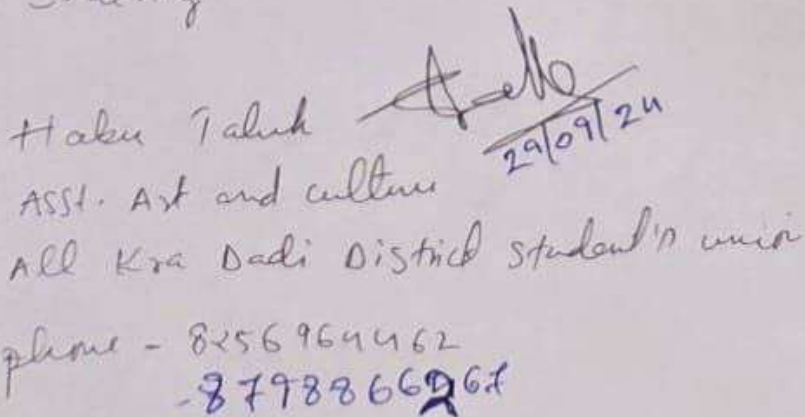 Haku Taluk
29/09/24
Asst. Art and culture
All Kra Dadi District student's union
phone - 8256964462